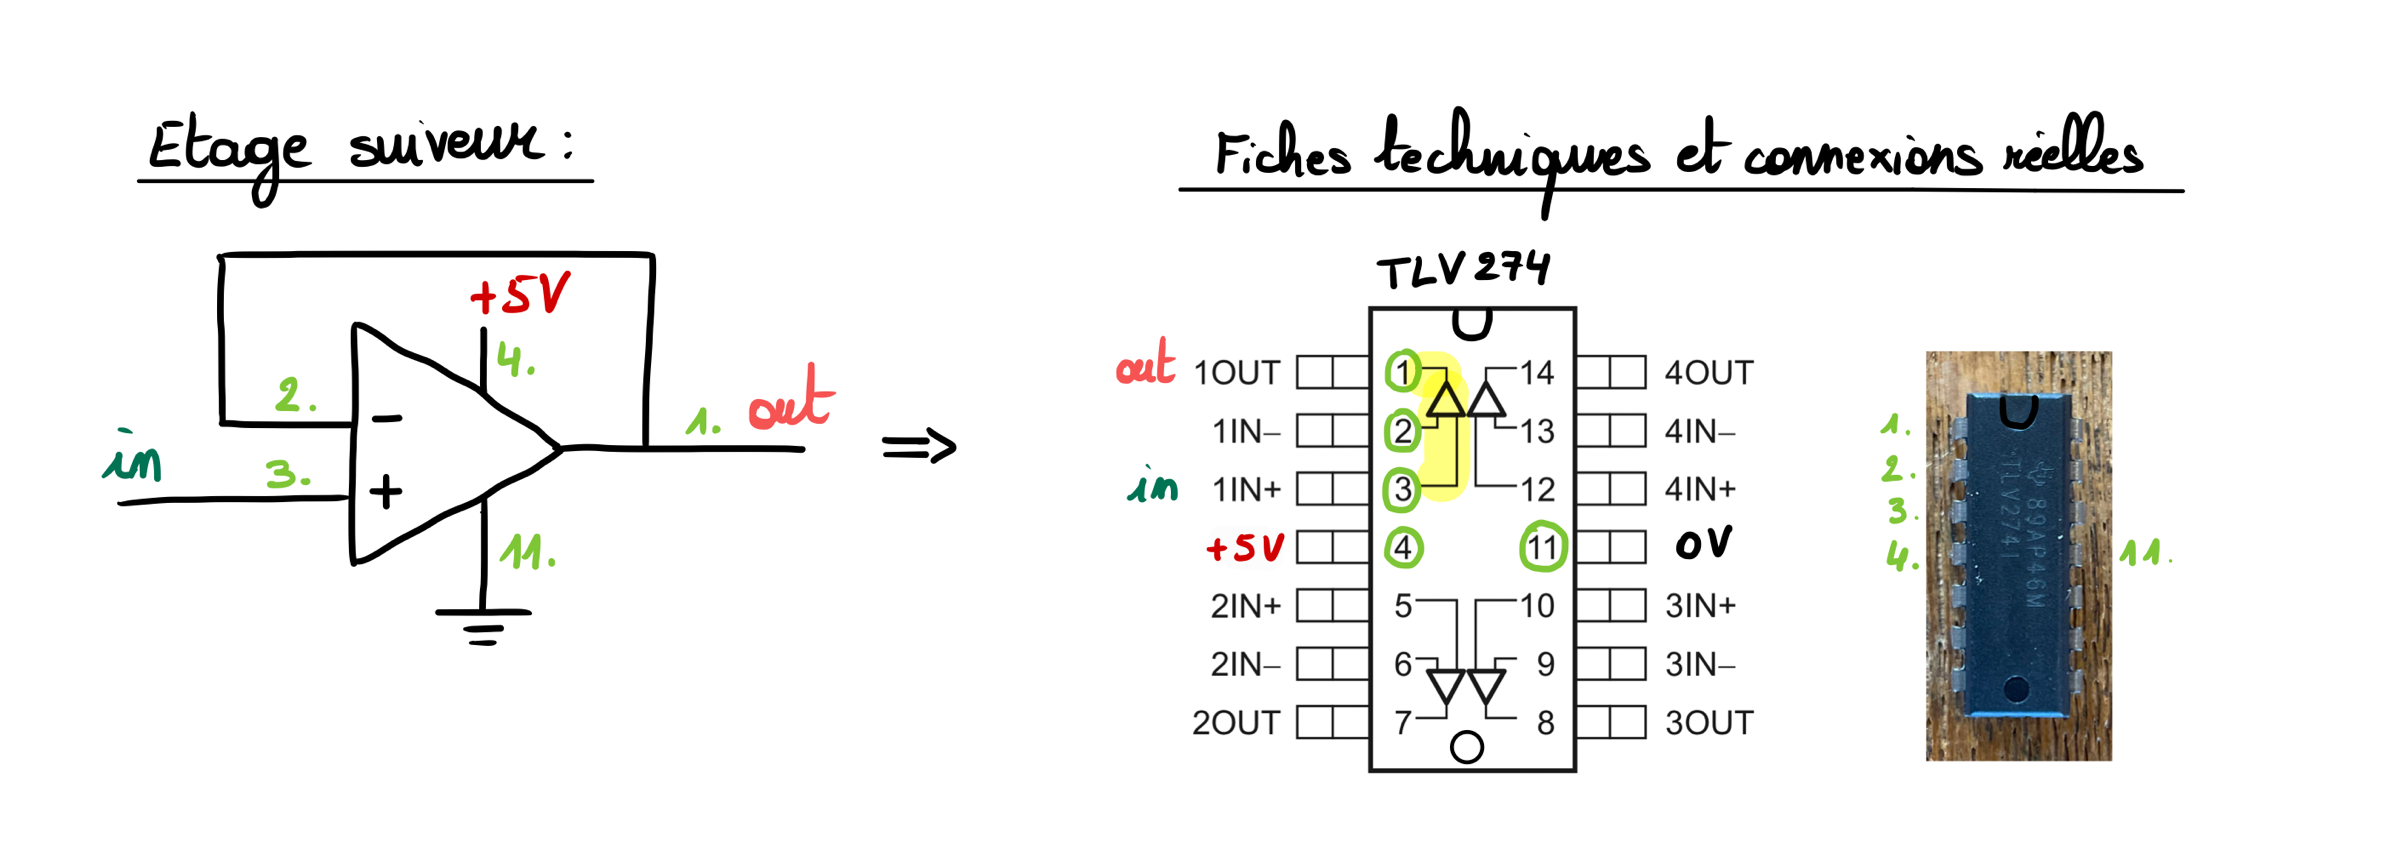 Etage suiveur :
+5V
4.
2.
-
in
3.
+
1. out
11.
⇒
Fiches techniques et connexions réelles
TLV 274
out 1OUT 1 14 4OUT
1IN– 2 13 4IN–
in 1IN+ 3 12 4IN+
+5V 4 11 0V
2IN+ 5 10 3IN+
2IN– 6 9 3IN–
2OUT 7 8 3OUT
1.
2.
3.
4.
11.
89AP46M
TLV274I